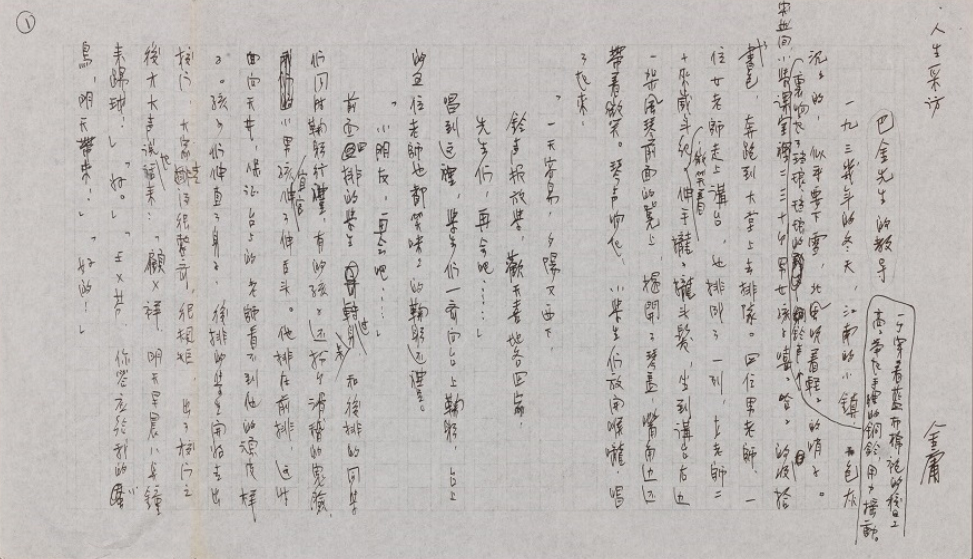 ①
人生采访
巴金先生的教导
金庸
一个穿着蓝布棉袍的校工
高高举起手里的铜铃,用力摇动。
一九三几年的冬天,江南的小镇,天色灰
沉沉的,似乎要下雪,北风吹着轻轻的哨子。
突然间,小学课室里二三十个男女孩子嘻嘻哈哈的收拾
书包,奔跑到大堂上去排队。四位男老师、一
位女老师走上讲台,也排成了一列,女老师二
十来岁年纪,微笑着伸手拢了拢头发,坐到讲台右边
一架风琴前面的凳上,揭开了琴盖,嘴角边还
带着微笑。琴声响起,小学生们放开喉咙,唱
了起来:
“一天容易,夕阳又西下,
铃声报放学,欢天喜地各回家,
先生们,再会吧……”
唱到这里,学生们一齐向台上鞠躬,台上
的五位老师也都笑咪咪的鞠躬还礼。
“小朋友,再会吧……”
前面四排的学生 也 和后排的同学
们同时鞠躬行礼,有的孩子还扮个滑稽的鬼脸,
小男孩宜官伸了伸舌头。他排在前排,这时
面向天井,保证台上的老师看不到他的顽皮样
子。孩子们伸直了身子,后排的学生开始走出
校门,大家走得很整齐,很规矩,出了校门之
后才大声说话起来:“顾×祥,明天早晨八点钟
来踢球!”“好。”“王×芳,你答应给我的
鸟,明天带来!”“好的!”